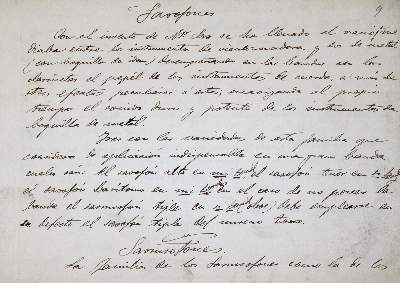 Saxofones
9
Con el invento de Mr. Sax se ha llenado el vacio que
habia entre los instrumentos de viento madera y los de metal
(con boquilla de idem) desempeñando en las bandas con los
clarinetes el papel de los instrumentos de cuerda, a mas de
otros efectos peculiares a estos, enriqueciendo al propio
tiempo el sonido lleno y potente de los instrumentos de
boquilla de metal.
Tres son las variedades de esta familia que
considero de aplicación indispensable en una gran banda
cuales son: el saxofón alto en mi el saxofón tenor en
el saxofón baritono en mi en el caso de no poseer la
banda el sarrusofón tiple en debe emplearse en
su defecto el saxofón tiple del mismo tono.
Sarrusofones
La familia de los Sarrusofones como la de los